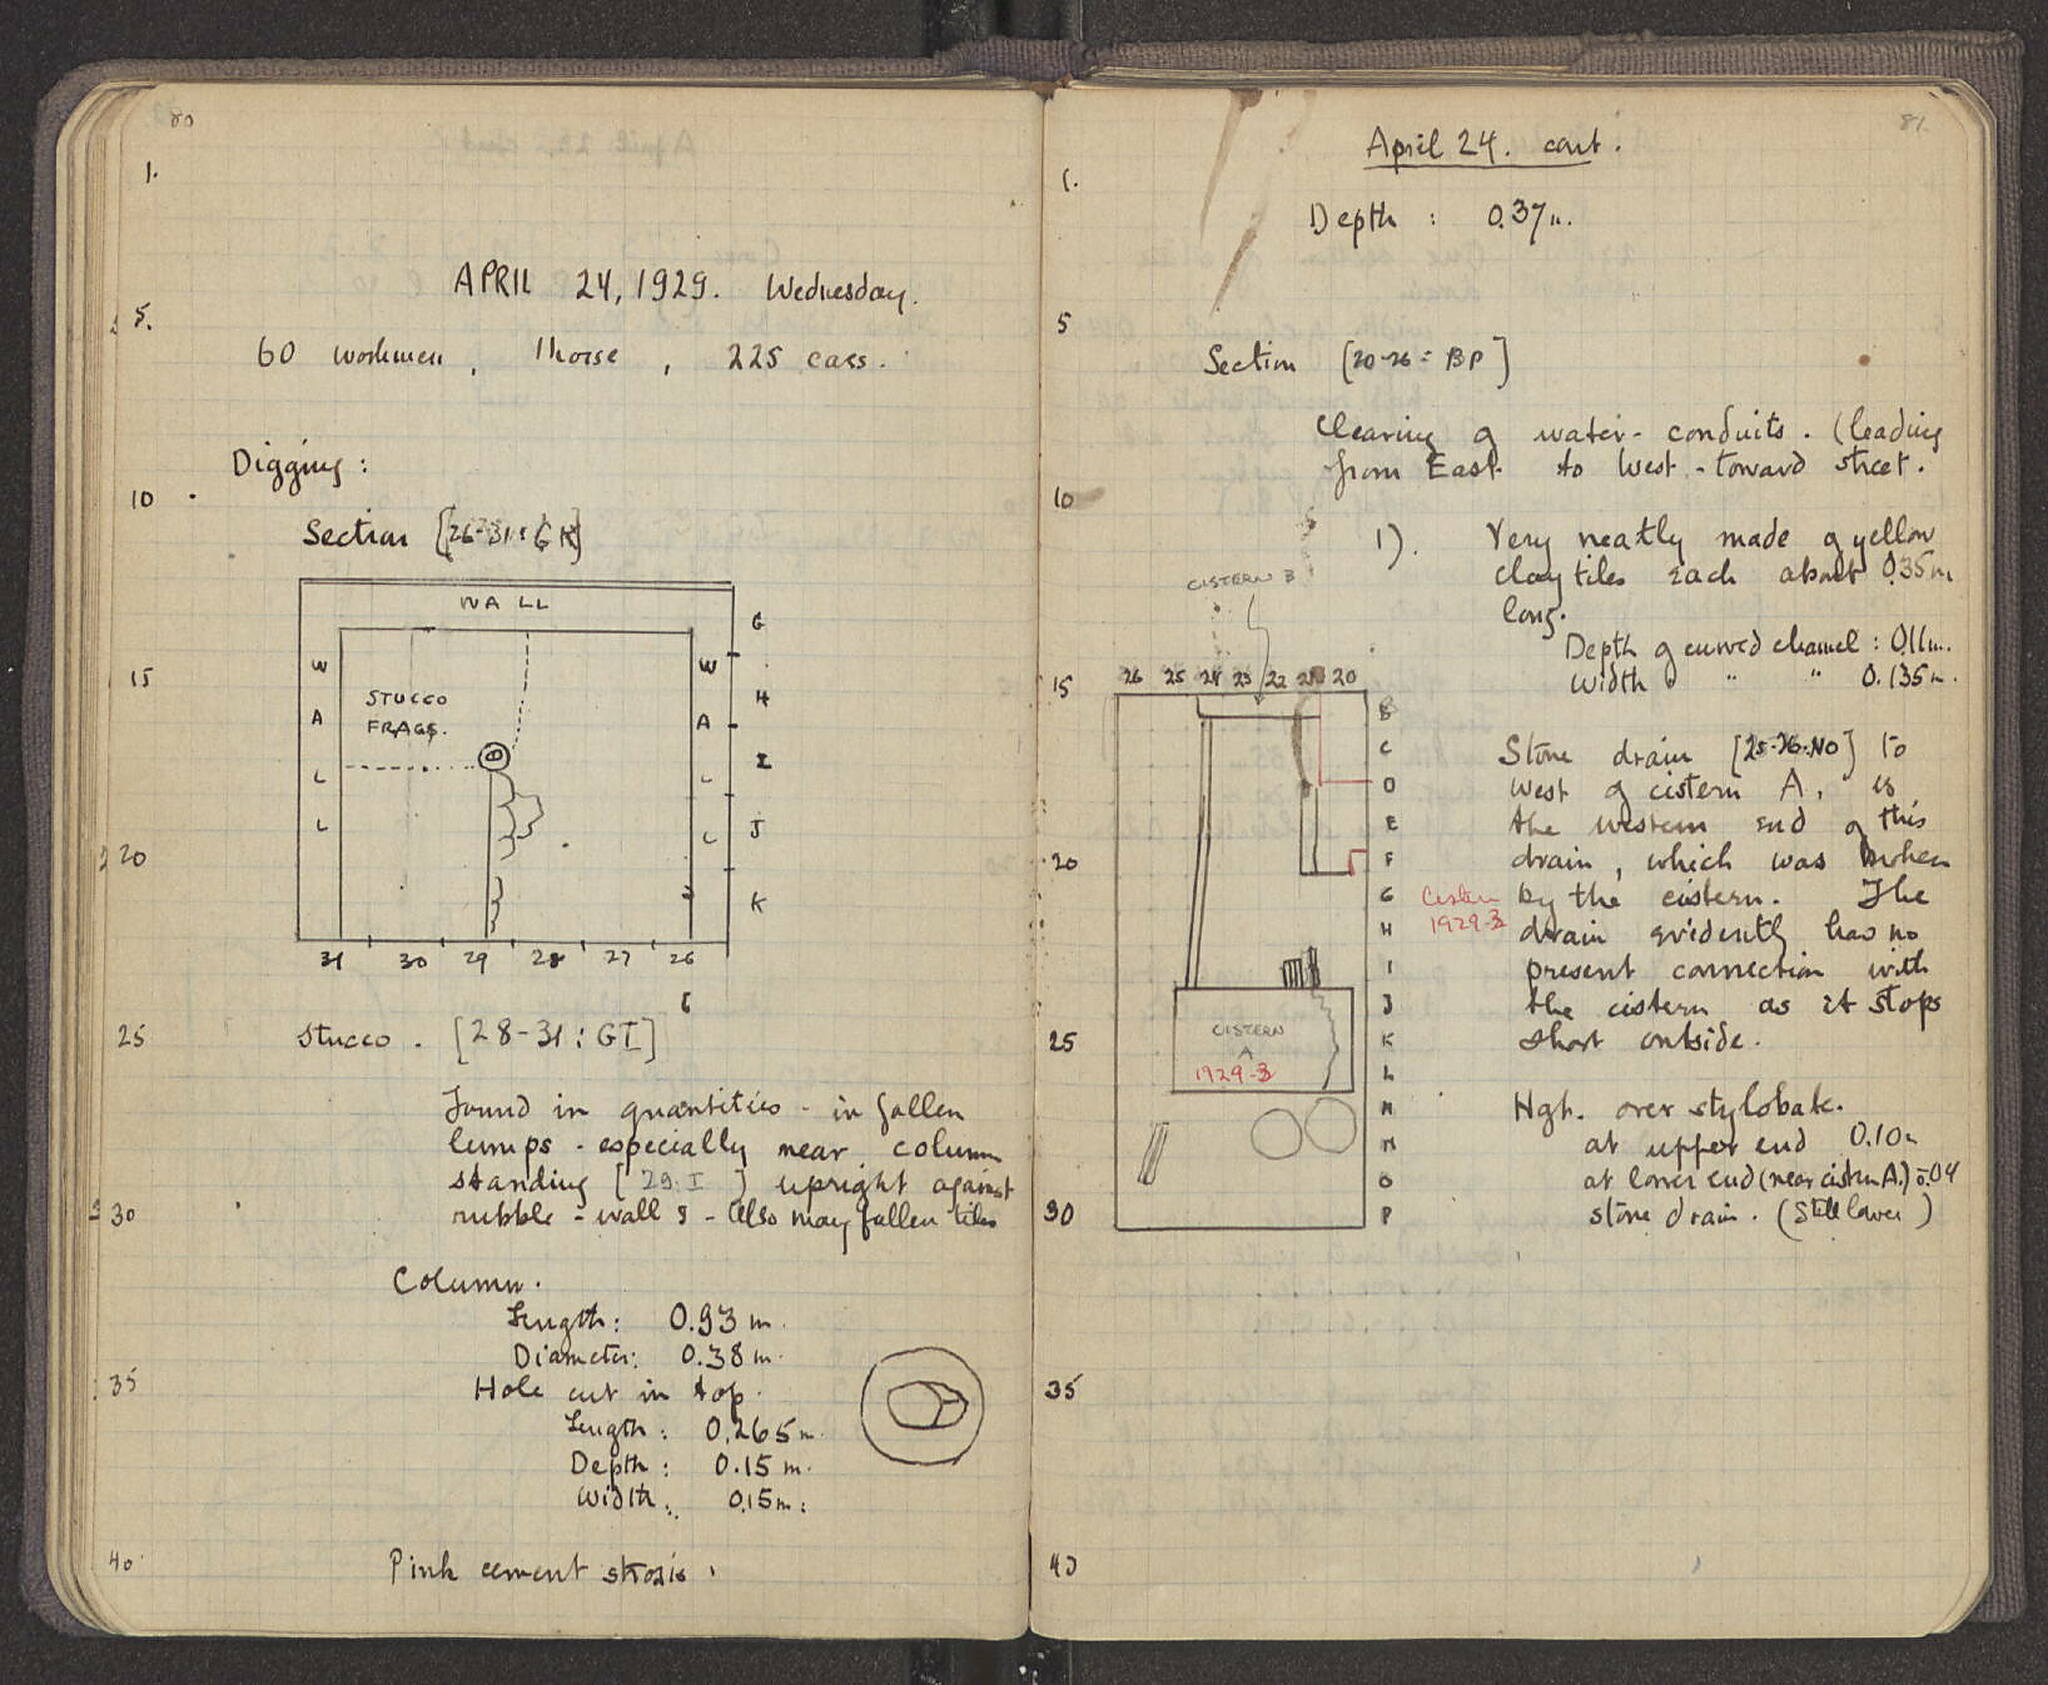 80
1.
APRIL 24, 1929. Wednesday.
5.
60 workmen, 1 horse, 225 cars.
Digging:
10
Section [26-31: GK]
WALL
G
W
W
STUCCO
15
H
A
A
FRAGS.
I
L
L
J
L
L
20
K
31 30 29 28 27 26
25
Stucco. [28-31: GI]
Found in quantities - in fallen
lumps - especially near column
standing [29. I ] upright against
30
rubble - wall - Also many fallen tiles
Column.
Length: 0.93 m.
Diameter: 0.38 m.
35
Hole cut in top.
Length: 0.265 m.
Depth: 0.15 m.
Width: 0.15 m.
40
Pink cement strosis.
81.
April 24. cont.
1.
Depth: 0.37 m.
5
Section [20-26: BP]
Clearing of water-conduits. (leading
from East to West - toward street.
10
1). Very neatly made of yellow
clay tiles each about 0.35 m
long.
Depth of curved channel: 0.11 m.
Width " " " 0.135 m.
CISTERN B
15
26 25 24 23 22 21 20
B
C
D
E
20
F
G
H
I
J
25
K
L
M
N
O
30
P
CISTERN
A
1929-3
Cistern
1929-3
Stone drain [25-26: NO] to
West of cistern A, is
the western end of this
drain, which was broken
by the cistern. The
drain evidently has no
present connection with
the cistern as it stops
short outside.
Hgt. over stylobate.
at upper end 0.10 m
at lower end (near cistern A.) 0.04
stone drain. (Still lower)
35
40